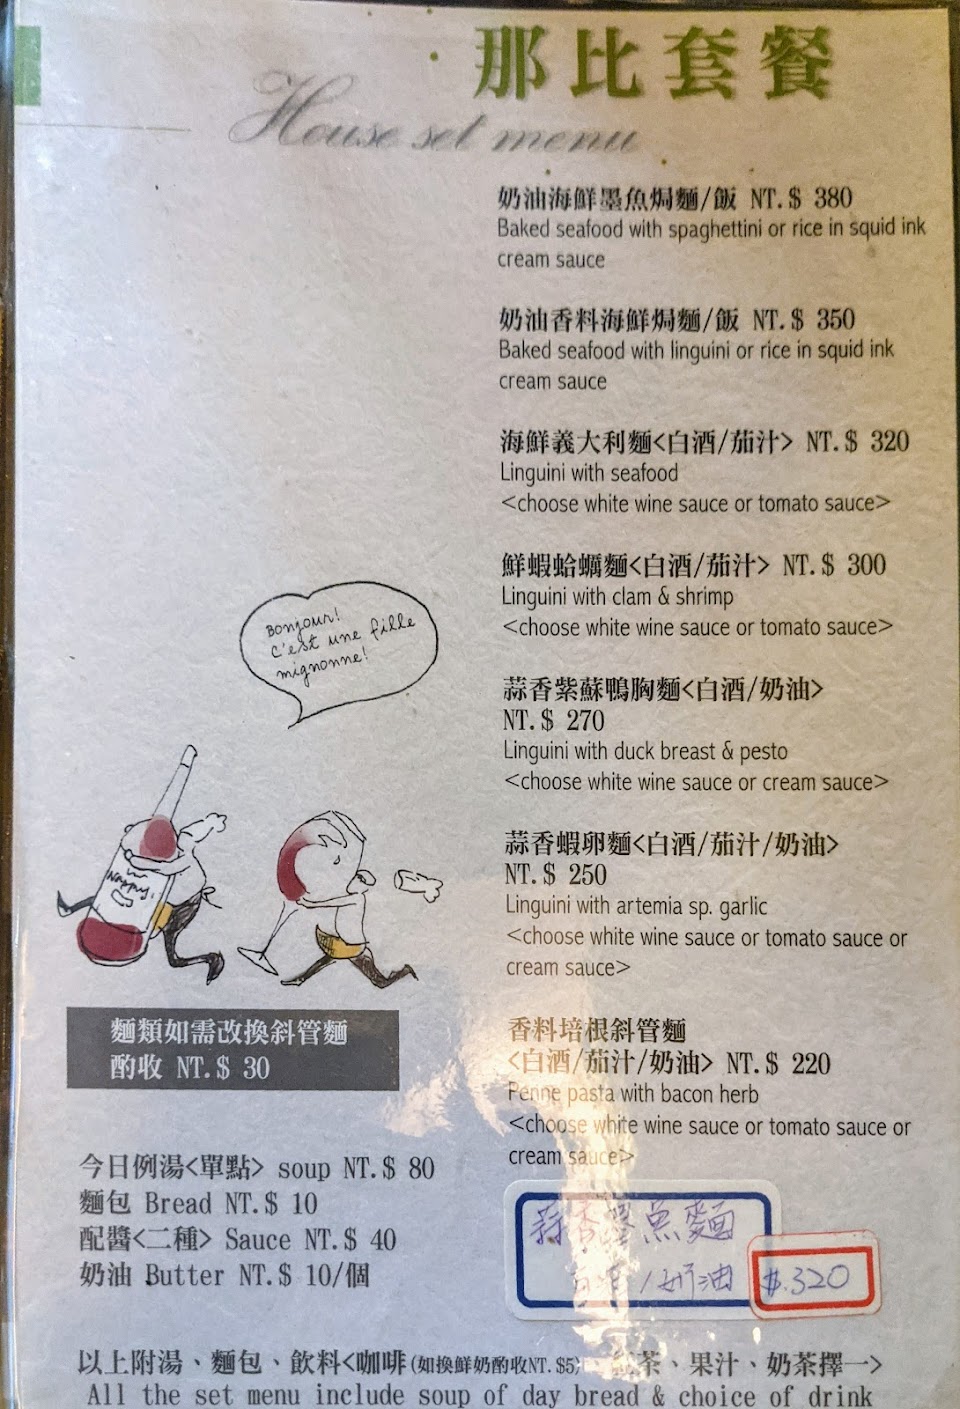 那比套餐
House set menu
奶油海鮮墨魚焗麵/飯 NT.$ 380
Baked seafood with spaghettini or rice in squid ink
cream sauce
奶油香料海鮮焗麵/飯 NT.$ 350
Baked seafood with linguini or rice in squid ink
cream sauce
海鮮義大利麵<白酒/茄汁> NT.$ 320
Linguini with seafood
<choose white wine sauce or tomato sauce>
鮮蝦蛤蠣麵<白酒/茄汁> NT.$ 300
Linguini with clam & shrimp
<choose white wine sauce or tomato sauce>
蒜香紫蘇鴨胸麵<白酒/奶油>
NT.$ 270
Linguini with duck breast & pesto
<choose white wine sauce or cream sauce>
蒜香蝦卵麵<白酒/茄汁/奶油>
NT.$ 250
Linguini with artemia sp. garlic
<choose white wine sauce or tomato sauce or
cream sauce>
香料培根斜管麵
<白酒/茄汁/奶油> NT.$ 220
Penne pasta with bacon herb
<choose white wine sauce or tomato sauce or
cream sauce>
蒜香墨魚麵
/奶油 $.320
Bonjour!
C'est une fille
mignonne!
麵類如需改換斜管麵
酌收 NT.$ 30
今日例湯<單點> soup NT.$ 80
麵包 Bread NT.$ 10
配醬<二種> Sauce NT.$ 40
奶油 Butter NT.$ 10/個
以上附湯、麵包、飲料<咖啡(如換鮮奶酌收NT.$5)、紅茶、果汁、奶茶擇一>
All the set menu include soup of day bread & choice of drink